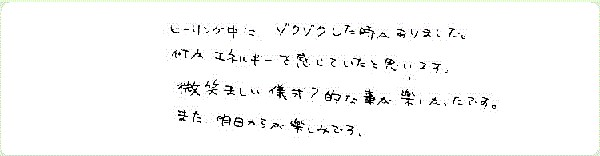 ヒーリング中に ゾクゾクした時がありました。
何かエネルギーを感じていたと思います。
微笑ましい儀式?的な事が楽しかったです。
また、明日からが楽しみです。